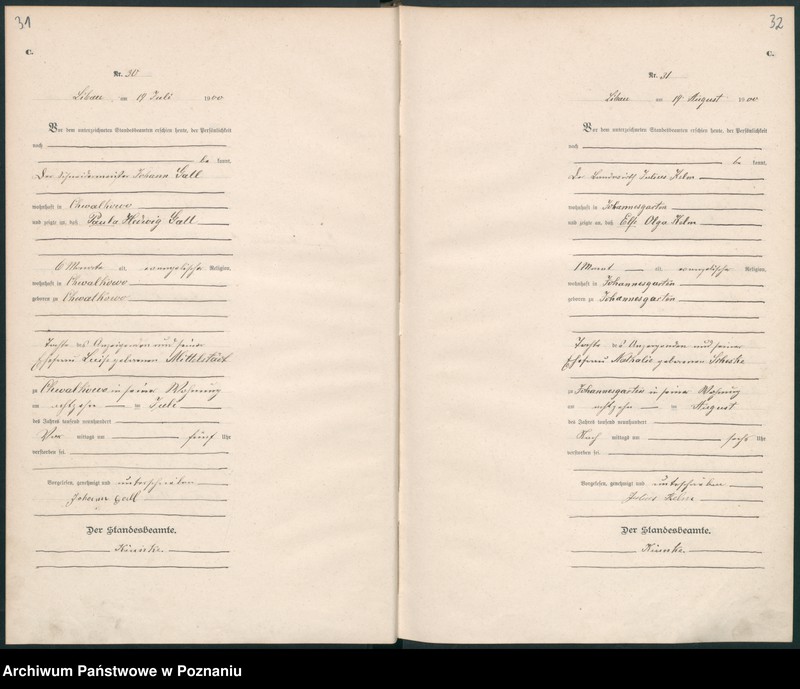 31
C.
Nr. 30
Libau, am 19 Juli 1900
Vor dem unterzeichneten Standesbeamten erschien heute, der Persönlichkeit
nach
be kannt,
Der Schneidermeister Johann Gall
wohnhaft in Chwalkowo
und zeigte an, daß Paula Hedwig Gall
6 Monate alt, evangelischer Religion,
wohnhaft in Chwalkowo
geboren zu Chwalkowo
Tochter des Anzeigenden und seiner
Ehefrau Luise geborenen Mittelstädt
zu Chwalkowo in seiner Wohnung
am achtzehn ten Juli
des Jahres tausend neunhundert
Vor mittags um fünf Uhr
verstorben sei.
Vorgelesen, genehmigt und unterschrieben
Johann Gall
Der Standesbeamte.
32
C.
Nr. 31
Libau am 19 August 1900
Vor dem unterzeichneten Standesbeamten erschien heute, der Persönlichkeit
nach
be kannt,
Der Julius
wohnhaft in Johannesgarten
und zeigte an, daß Olga
1 Monat alt, evangelischer Religion,
wohnhaft in Johannesgarten
geboren zu Johannesgarten
Tochter des Anzeigenden und seiner
Ehefrau Mathalie geborenen
zu Johannesgarten in seiner Wohnung
am achtzehn ten August
des Jahres tausend neunhundert
Nach mittags um sechs Uhr
verstorben sei.
Vorgelesen, genehmigt und unterschrieben
Julius
Der Standesbeamte.
Archiwum Państwowe w Poznaniu